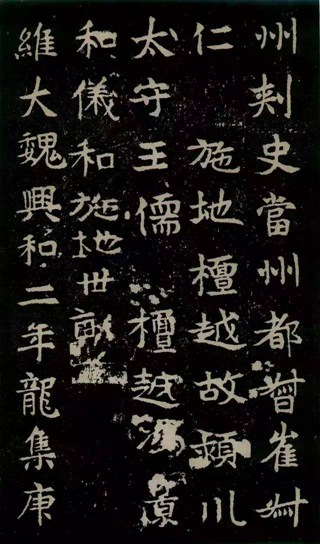 州刾史當州都督崔叔
仁 施地檀越故頴川
太守王儒 檀越
和儀和施地廿畝
維大魏興和二年龍集庚